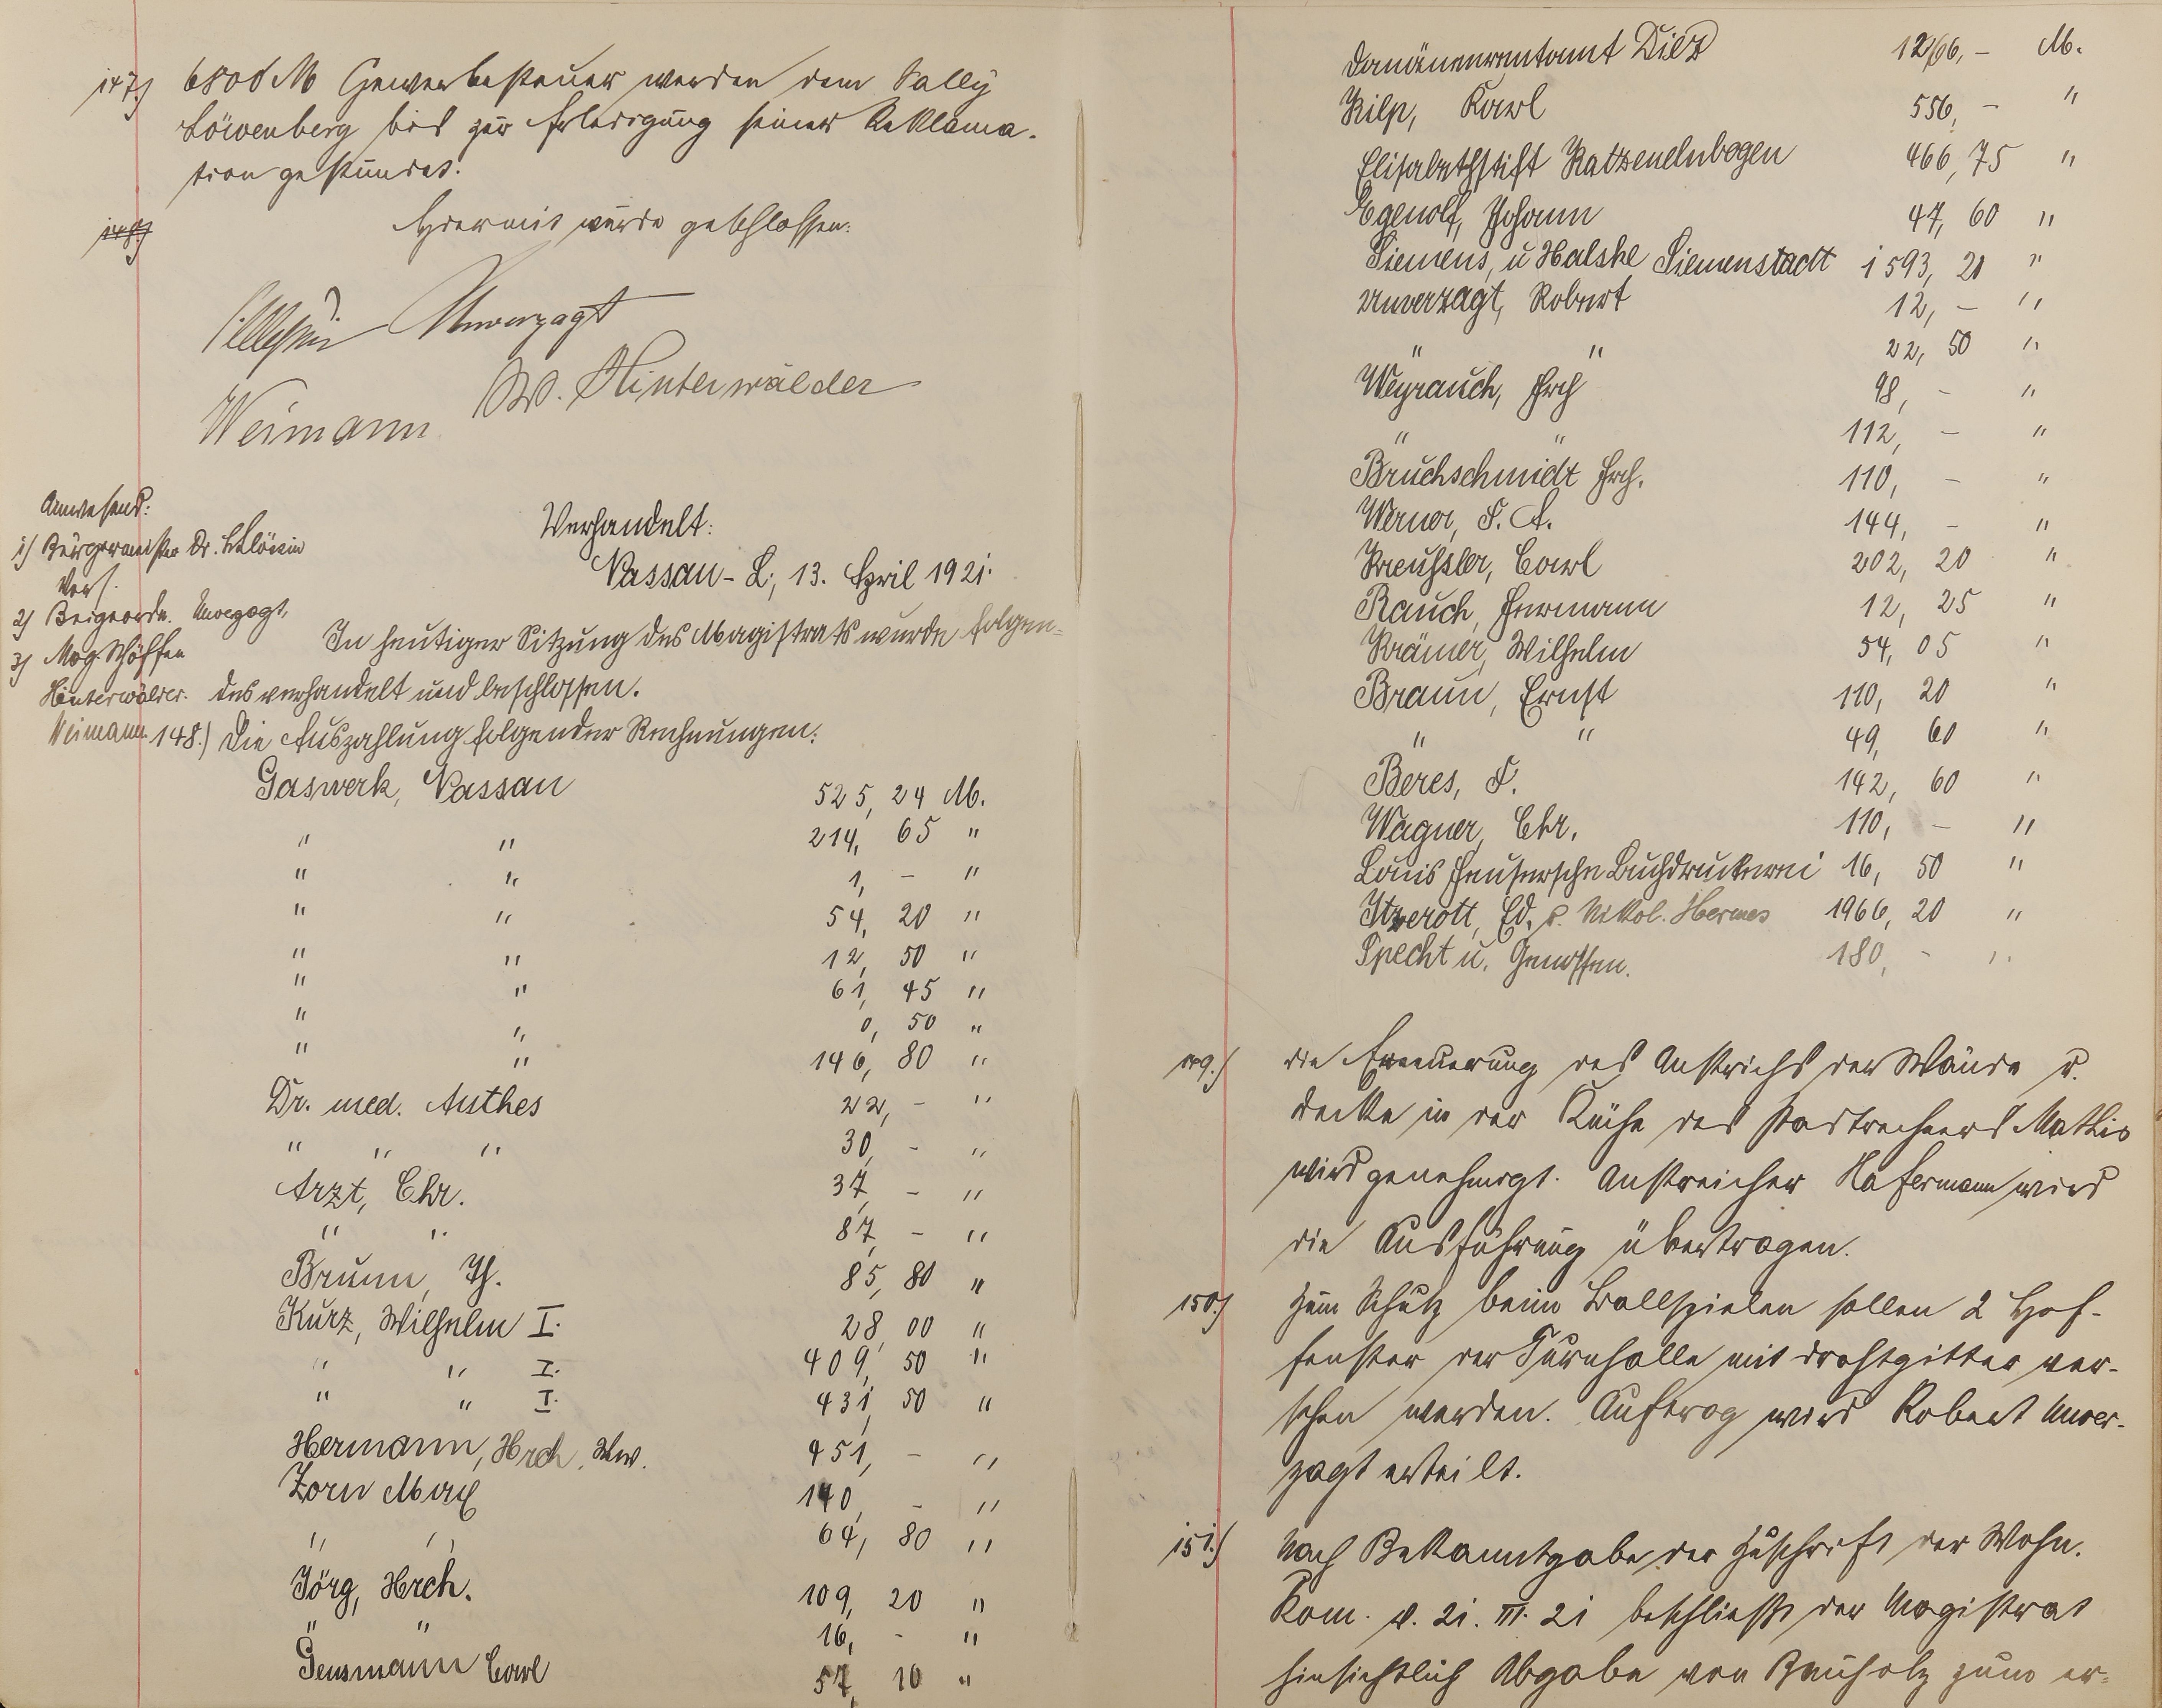 147.) 6800 M Gewerbesteuer werden dem Sally
Löwenberg bis zur Erledigung seiner Reklama-
tion gestundet.
148.) Hiermit wurde geschlossen:
Unverzagt
W. Hinterwälder
Weimann
Anwesend:
1) Bürgermeister Dr.
Vors.
2) Beigeordn. Unverzagt,
3) Mag. Schöffen
Hinterwälder.
Weimann
Verhandelt:
Nassau-L., 13. April 1921.
In heutiger Sitzung des Magistrats wurde folgen-
des verhandelt und beschlossen.
148.) Die Auszahlung folgender Rechnungen:
Gaswerk, Nassau 525,24 M.
" " 214,65 "
" " 1,- "
" " 54,20 "
" " 12,50 "
" " 61,45 "
" " 0,50 "
" " 146,80 "
Dr. med. Anthes 22,- "
" " " 30,- "
Arzt, Chr. 37,- "
" " 87,- "
Brunn, Th. 85,80 "
Kurz, Wilhelm I. 28,00 "
" " I. 409,50 "
" " I. 431,50 "
Hermann, Hrch. Ww. 451,- "
Zorn Max 140,- "
" " 64,80 "
Jörg, Hrch. 109,20 "
" " 16,- "
Gensmann Carl 57,10 "
Domänenrentamt Diez M.
Kilp, Karl 556,- "
Elisabethstift Katzenelnbogen 466,75 "
Egenolf, Johann 47,60 "
Siemens, u Halske Siemenstadt 1593,20 "
Unverzagt, Robert 12,- "
" " 22,50 "
Weyrauch, Frch 98,- "
" " 112,- "
Bruchschmidt Frch. 110,- "
Werner, F. A. 144,- "
Kreußler, Carl 202,20 "
Rauch, Hermann 12,25 "
Krämer, Wilhelm 54,05 "
Braun, Ernst 110,20 "
" " 49,60 "
Beres, F. 142,60 "
Wagner, Chr. 110,- "
Louis Heusersche Buchdruckerei 16,50 "
Itzerott, Ed. u. Nikol. Hermes 1966,20 "
Specht u. Genossen. 180,- "
149.) die Erneuerung des Anstrichs der Wände u.
Decke in der Küche des Stadtrechners Mathis
wird genehmigt. Anstreicher Hafermann wird
die Ausführung übertragen.
150.) Zum Schutz beim Ballspielen sollen 2 Hof-
fenster der Turnhalle mit Drahtgitter ver-
sehen werden. Auftrag wird Robert Unver-
zagt erteilt.
151.) Nach Bekanntgabe der Zuschrift der Wohn.
Kom. v. 21. III. 21 beschließt der Magistrat
hinsichtlich Abgabe von Bauholz zum er-